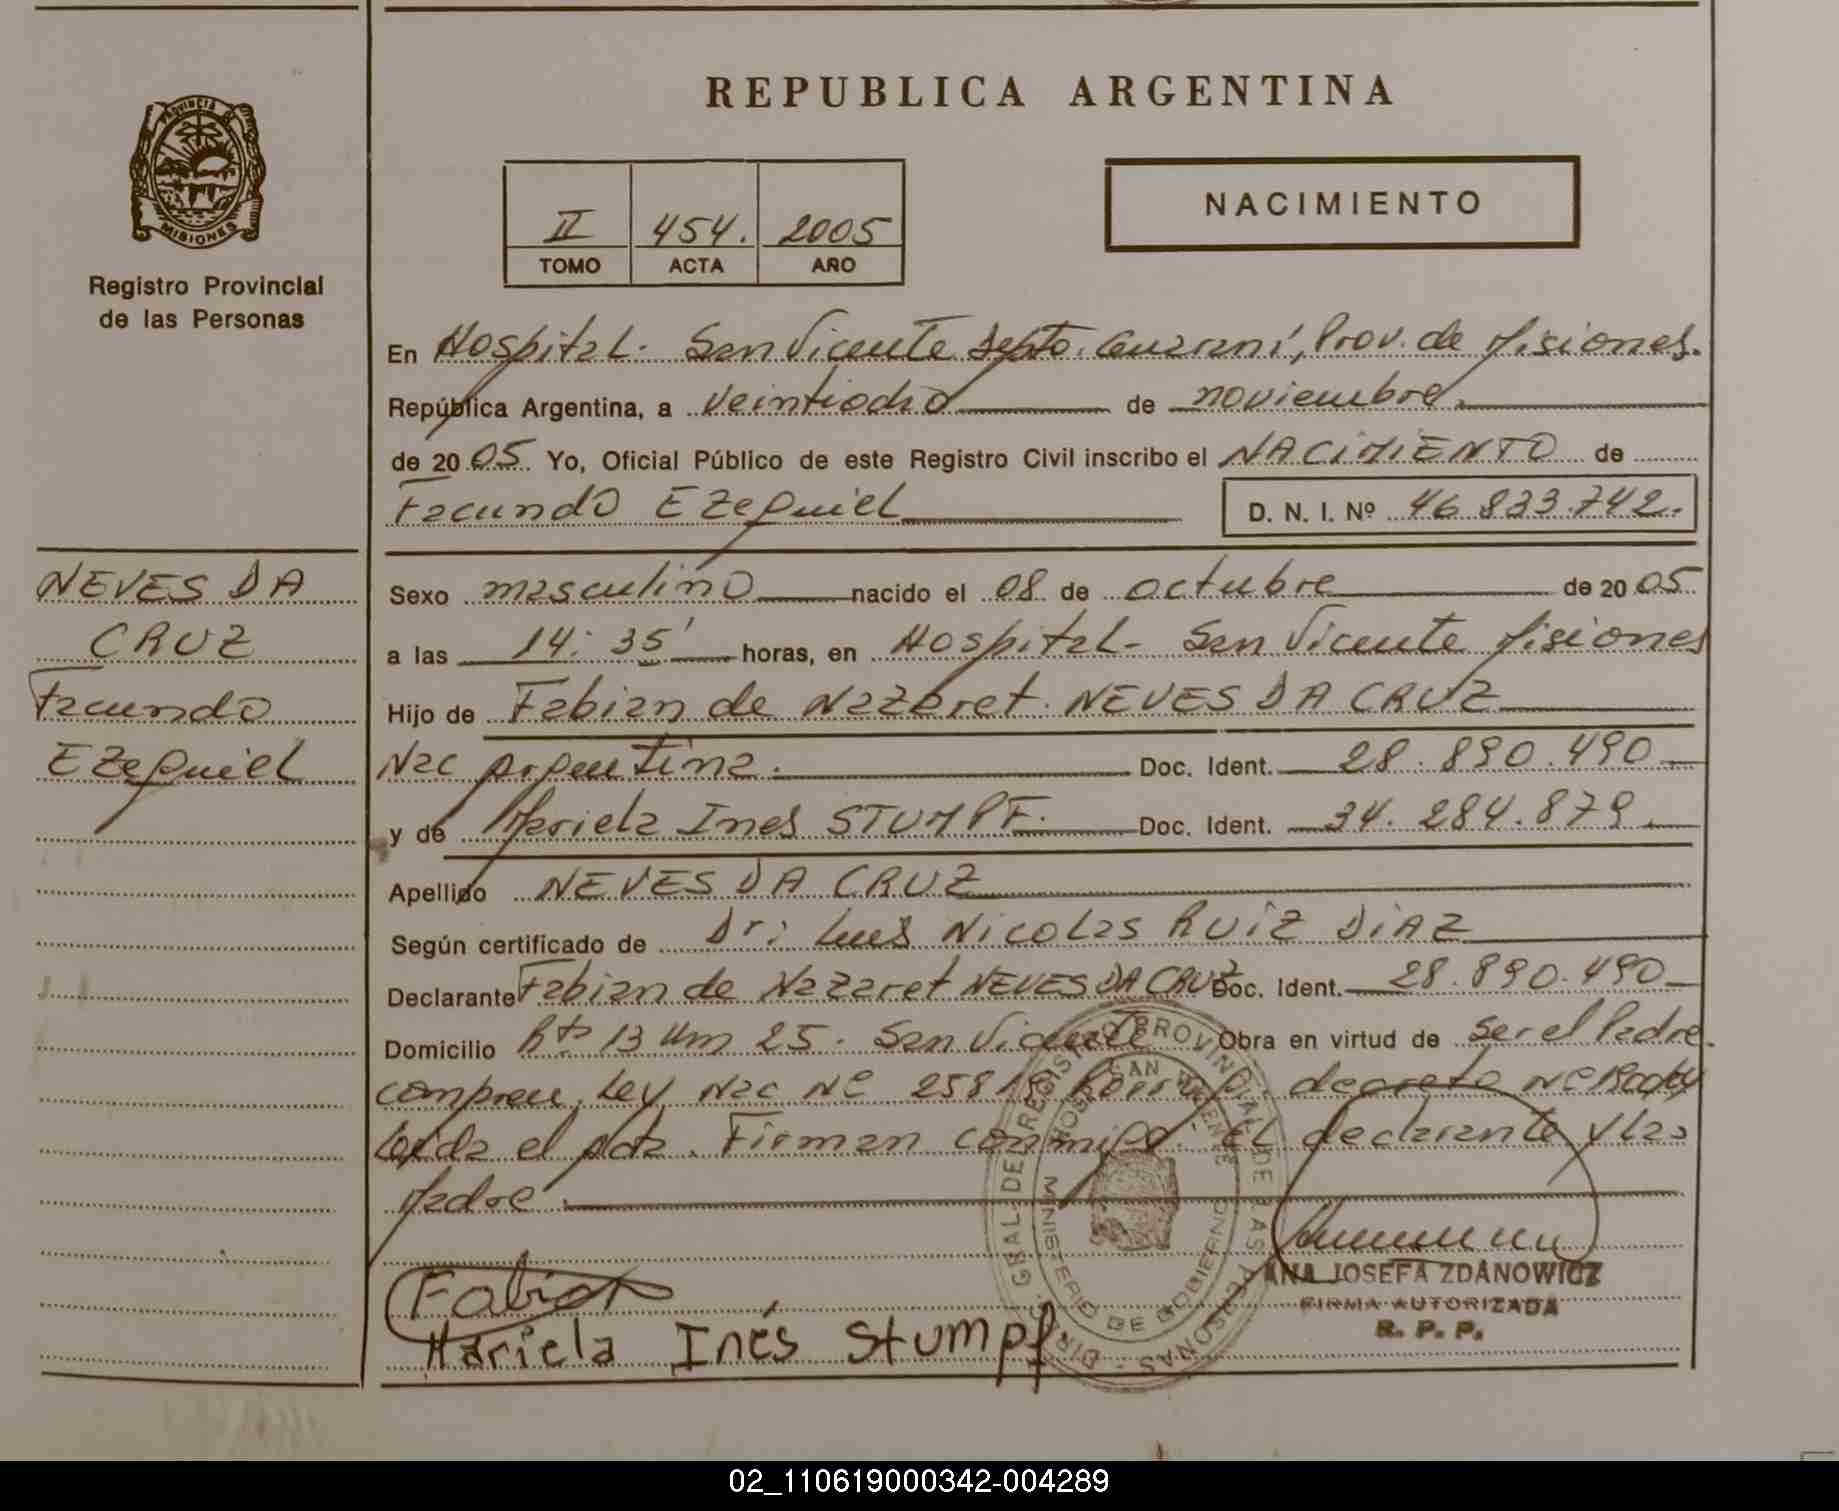 REPUBLICA ARGENTINA
PROVINCIA
MISIONES
Registro Provincial
de las Personas
II 454. 2005
TOMO ACTA AÑO
NACIMIENTO
En Hospital. San Vicente Depto. Guarani, Prov. de Misiones.
República Argentina, a veintiocho de noviembre
de 2005. Yo, Oficial Público de este Registro Civil inscribo el NACIMIENTO de
Facundo Ezequiel D. N. I. Nº 46.833.742.
NEVES DA
CRUZ
Facundo
Ezequiel
Sexo masculino nacido el 08 de octubre de 2005
a las 14:35' horas, en Hospital- San Vicente Misiones
Hijo de Fabian de Nazaret. NEVES DA CRUZ
Nac Argentina. Doc. Ident. 28.890.490
y de Mariela Ines STUMPF. Doc. Ident. 34.284.879.
Apellido NEVES DA CRUZ
Según certificado de Dr: Luis Nicolas RUIZ DIAZ
Declarante Fabian de Nazaret NEVES DA CRUZ Doc. Ident. 28.890.490
Domicilio Rta 13 Km 25. San Vicente Obra en virtud de Ser el Padre.
Ley Nac Nº decreto
Leida el Acta. Firman conmigo. El declarante y la
Madre.
Fabian
Mariela Inés Stumpf.
DIR. GRAL. DEL REGISTRO PROVINCIAL DE LAS PERSONAS
HOSP. SAN VICENTE
MINISTERIO DE GOBIERNO
ANA JOSEFA ZDANOWICZ
FIRMA AUTORIZADA
R. P. P.
02_110619000342-004289